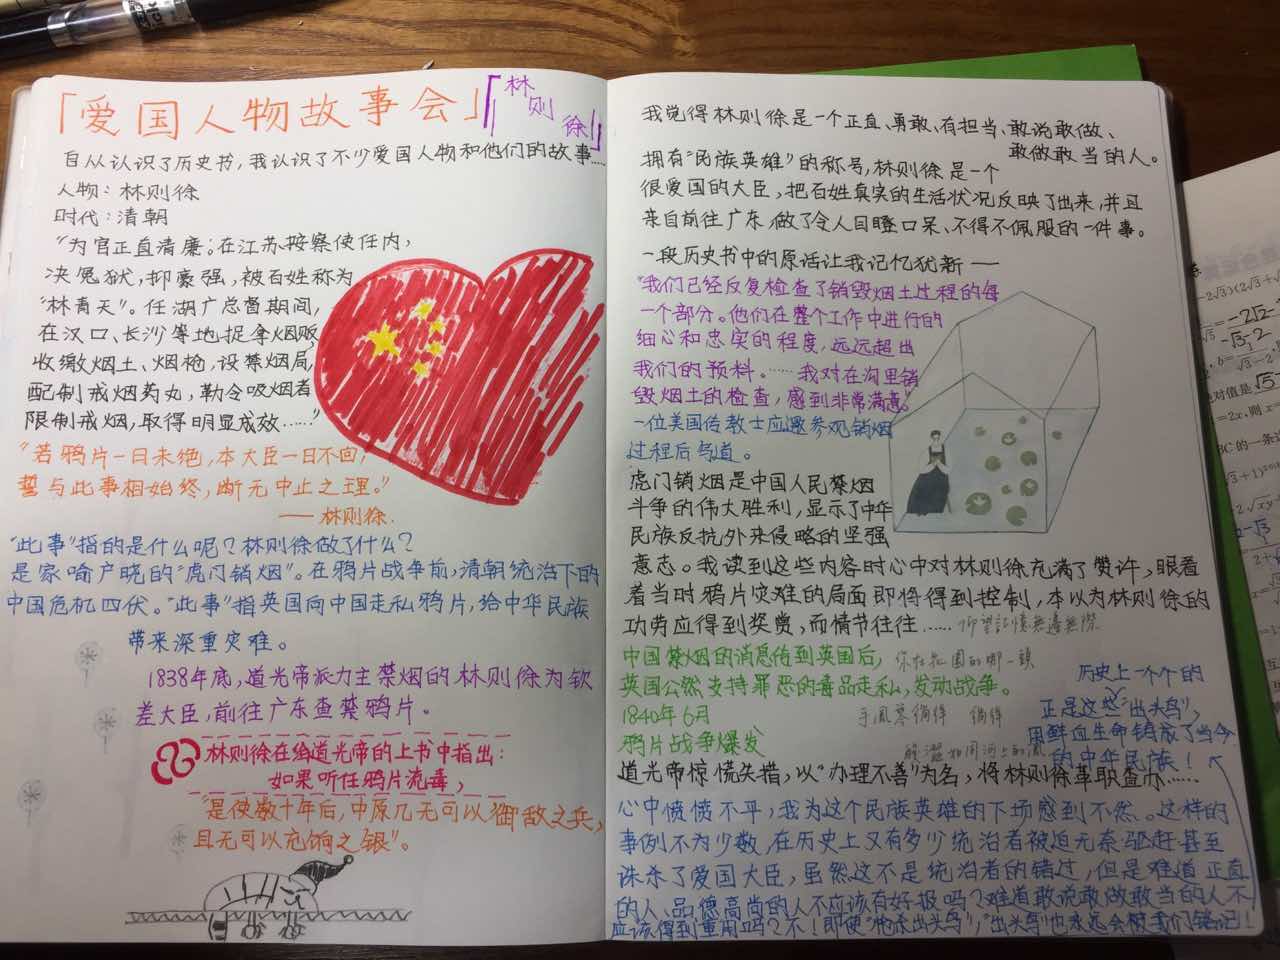 「爱国人物故事会」
『林则徐』
自从认识了历史书，我认识了不少爱国人物和他们的故事……
人物：林则徐
时代：清朝
“为官正直清廉。在江苏按察使任内，
决冤狱，抑豪强，被百姓称为
“林青天”。任湖广总督期间，
在汉口、长沙等地捉拿烟贩，
收缴烟土、烟枪，设禁烟局，
配制戒烟药丸，勒令吸烟者
限制戒烟，取得明显成效……”
“若鸦片一日未绝，本大臣一日不回，
誓与此事相始终，断无中止之理。”
——林则徐.
“此事”指的是什么呢？林则徐做了什么？
是家喻户晓的“虎门销烟”。在鸦片战争前，清朝统治下的
中国危机四伏。“此事”指英国向中国走私鸦片，给中华民族
带来深重灾难。
1838年底，道光帝派力主禁烟的林则徐为钦
差大臣，前往广东查禁鸦片。
林则徐在给道光帝的上书中指出：
如果听任鸦片流毒，
“是使数十年后，中原几无可以御敌之兵，
且无可以充饷之银”。
我觉得林则徐是一个正直、勇敢、有担当、敢说敢做、
敢做敢当的人。
拥有“民族英雄”的称号，林则徐是一个
很爱国的大臣，把百姓真实的生活状况反映了出来，并且
亲自前往广东，做了令人目瞪口呆、不得不佩服的一件事。
一段历史书中的原话让我记忆犹新——
“我们已经反复检查了销毁烟土过程的每
一个部分。他们在整个工作中进行的
细心和忠实的程度，远远超出
我们的预料。……我对在沟里销
毁烟土的检查，感到非常满意。”
一位美国传教士应邀参观销烟
过程后写道。
虎门销烟是中国人民禁烟
斗争的伟大胜利，显示了中华
民族反抗外来侵略的坚强
意志。我读到这些内容时心中对林则徐充满了赞许，眼看
着当时鸦片灾难的局面即将得到控制，本以为林则徐的
功劳应得到奖赏，而情节往往……
仰望記憶無邊無際
中国禁烟的消息传到英国后，
你在花園的哪一頭
英国公然支持罪恶的毒品走私，发动战争。
1840年6月
鸦片战争爆发
历史上一个个的
正是这些“出头鸟”，
用鲜血生命铸成了当今
的中华民族！
道光帝惊慌失措，以“办理不善”为名，将林则徐革职查办……
心中愤愤不平，我为这个民族英雄的下场感到不然。这样的
事例不为少数，在历史上又有多少统治者被迫无奈驱赶甚至
诛杀了爱国大臣，虽然这不是统治者的错过，但是难道正直
的人、品德高尚的人不应该有好报吗？难道敢说敢做敢当的人不
应该得到重用吗？不！即使“枪杀出头鸟”，“出头鸟”也永远会被我们铭记！